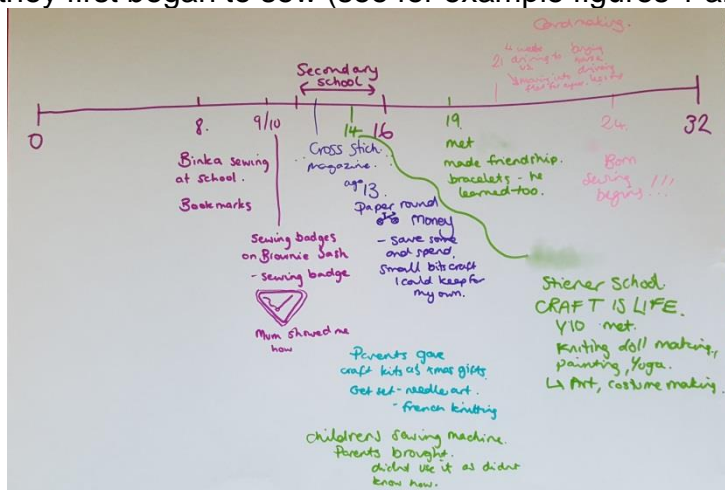 they first began to sew (see for example figures 1 a
Cardmaking.
Secondary
school
0
8.
9/10
14
16
19.
21
24.
32
Binka sewing
at school.
Bookmarks
Sewing badges
on Brownie Sash
- sewing badge
Mum showed me
how
Cross Stich
magazine.
age 13.
Paper round
Money
- save some
and spend.
Small bits craft
I could keep for
my own.
met
made friendship.
bracelets - he
learned too.
Born
Sewing
begins !!!
Stiener School.
CRAFT IS LIFE.
Y10 met.
Kniting doll making,
painting, Yoga.
↳ Art, costume making.
Parents gave
craft kits as xmas gifts.
Get set - needle art.
- french knitting
Childrens sewing machine.
Parents brought.
didnt use it as didnt
know how.